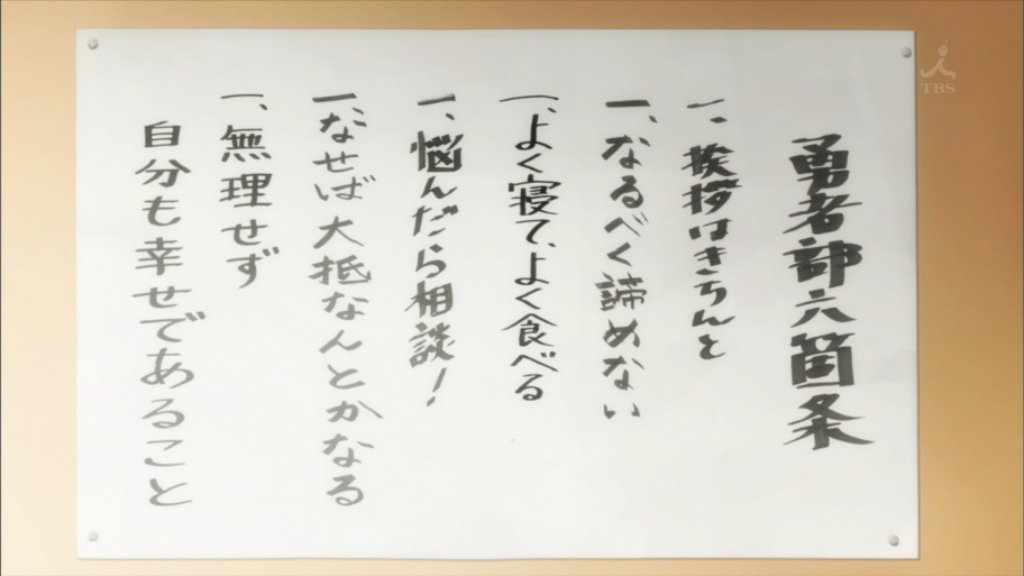 勇者部六箇条
一、挨拶はきちんと
一、なるべく諦めない
一、よく寝て、よく食べる
一、悩んだら相談！
一、なせば大抵なんとかなる
一、無理せず
自分も幸せであること
TBS